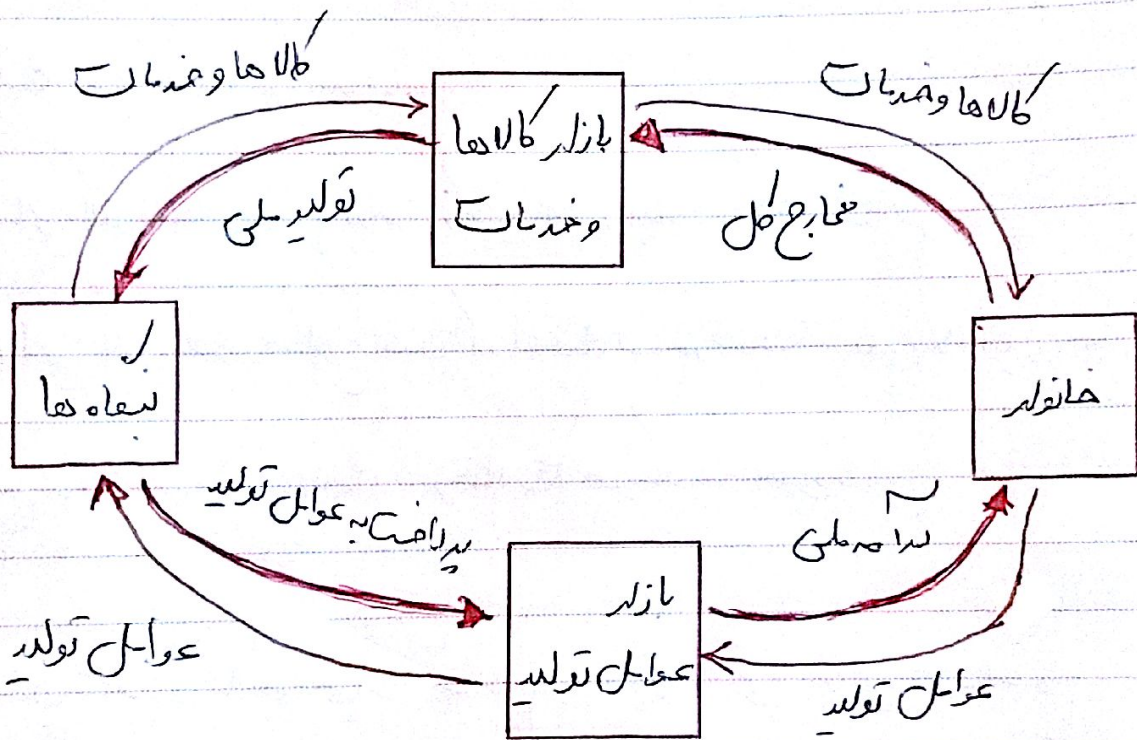 کالاها و خدمات
کالاها و خدمات
بازار کالاها
و خدمات
تولید ملی
مخارج کل
بنگاه ها
خانوار
پرداخت به عوامل تولید
درآمد ملی
بازار
عوامل تولید
عوامل تولید
عوامل تولید